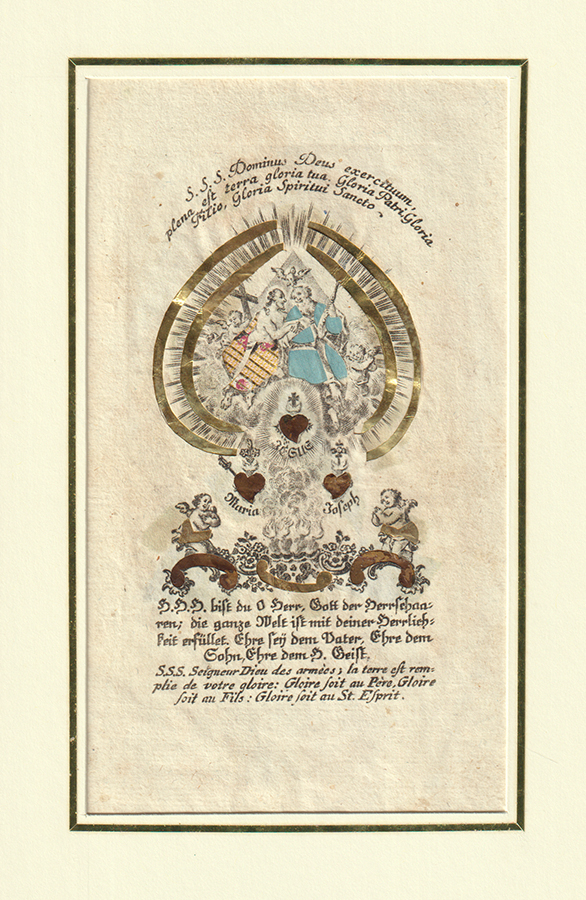 S. S. S. Dominus Deus exercituum,
plena est terra gloria tua. Gloria Patri. Gloria
Filio, Gloria Spiritui Sancto.
JESUS
Maria
Joseph
H. H. H. bist du O Herr, Gott der Herrschaa-
ren; die ganze Welt ist mit deiner Herrlich-
keit erfüllet. Ehre sey dem Vater, Ehre dem
Sohn, Ehre dem H. Geist.
S.S.S. Seigneur Dieu des armées; la terre est rem-
plie de votre gloire: Gloire soit au Père, Gloire
soit au Fils: Gloire soit au St. Esprit.